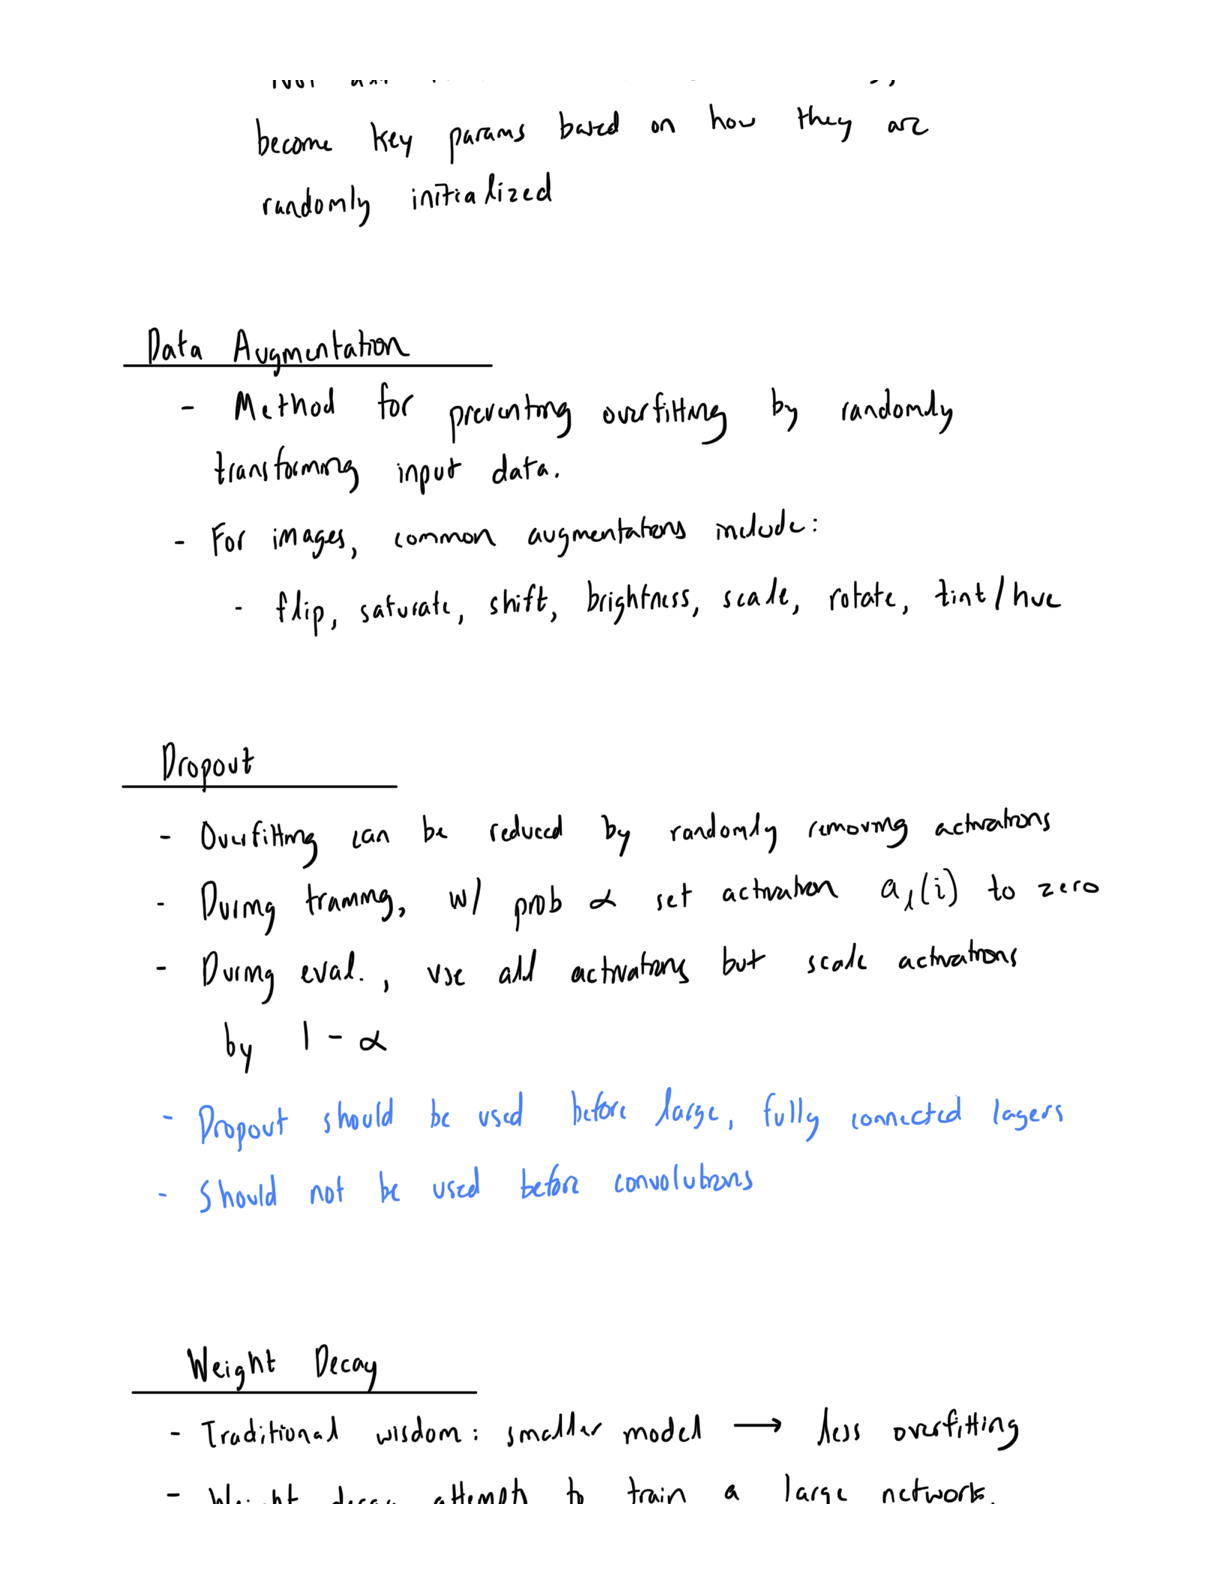 become key params based on how they are
randomly initialized
Data Augmentation
- Method for preventing overfitting by randomly
transforming input data.
- For images, common augmentations include:
- flip, saturate, shift, brightness, scale, rotate, tint/hue
Dropout
- Overfitting can be reduced by randomly removing activations
- During training, w/ prob α set activation a_l(i) to zero
- During eval., use all activations but scale activations
by 1 - α
- Dropout should be used before large, fully connected layers
- Should not be used before convolutions
Weight Decay
- Traditional wisdom: smaller model → less overfitting
- Weight decay attempts to train a large network,